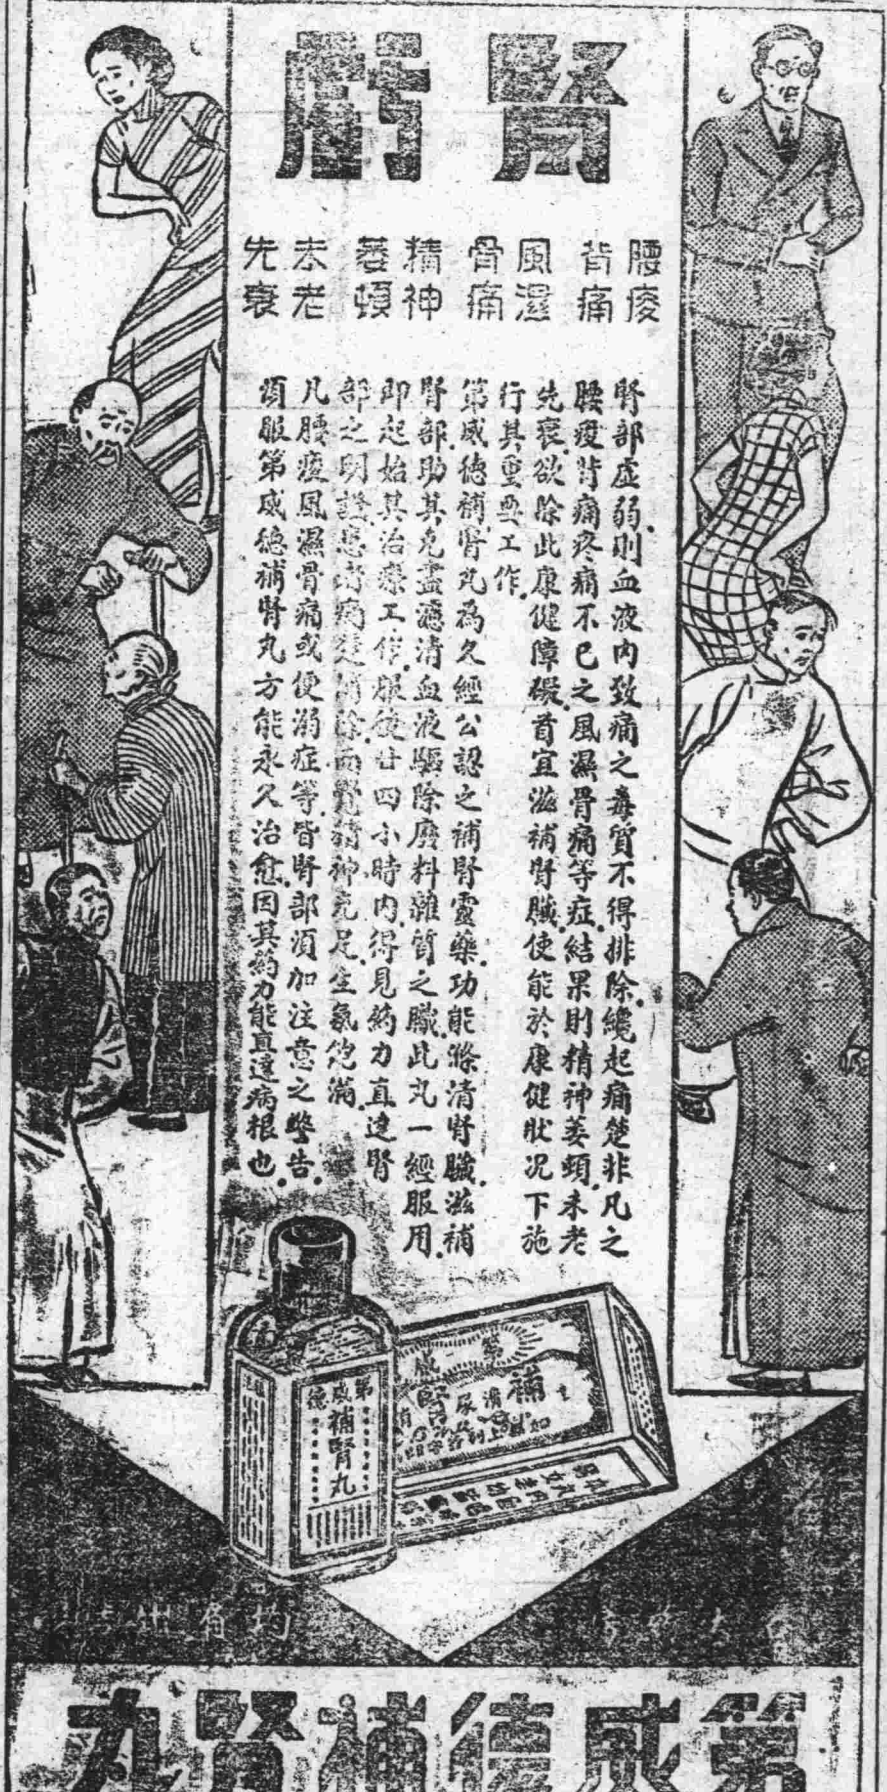 腎虧
腰痠
背痛
風濕
骨痛
精神
萎頓
未老
先衰
腎部虛弱則血液內致病之毒質不得排除纔起痛楚非凡之
腰痠背痛疼痛不已之風濕骨痛等症結果則精神萎頓未老
先衰欲除此康健障礙首宜滋補腎臟使能於康健狀況下施
行其重要工作
第威德補腎丸為久經公認之補腎靈藥功能滌清腎臟滋補
腎部助其克盡濾清血液驅除廢料雜質之職此丸一經服用
即起始其治療工作服後廿四小時內得見藥力直達腎
部之明證患者病楚消除而覺精神充足生氣飽滿
凡腰痠風濕骨痛或便溺症等皆腎部須加注意之警告
須服第威德補腎丸方能永久治愈因其藥力能直達病根也
第威德
補腎丸
第威
補
各大藥房
均有出售
第威德補腎丸